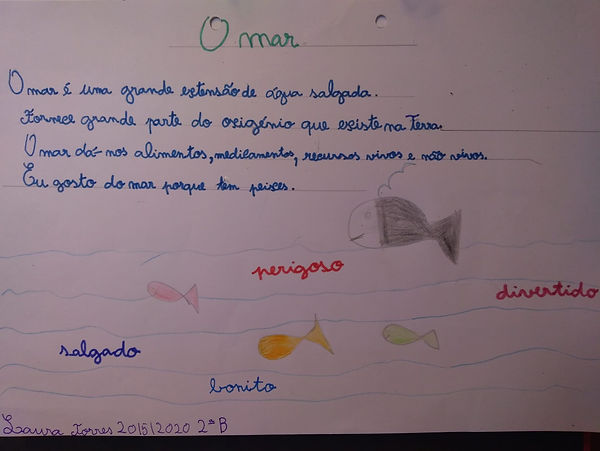 O mar
O mar é uma grande extensão de água salgada.
Fornece grande parte do oxigénio que existe na Terra.
O mar dá-nos alimentos, medicamentos, recursos vivos e não vivos.
Eu gosto do mar porque tem peixes.
perigoso
divertido
salgado
bonito
Laura Torres 201512020 2ª B